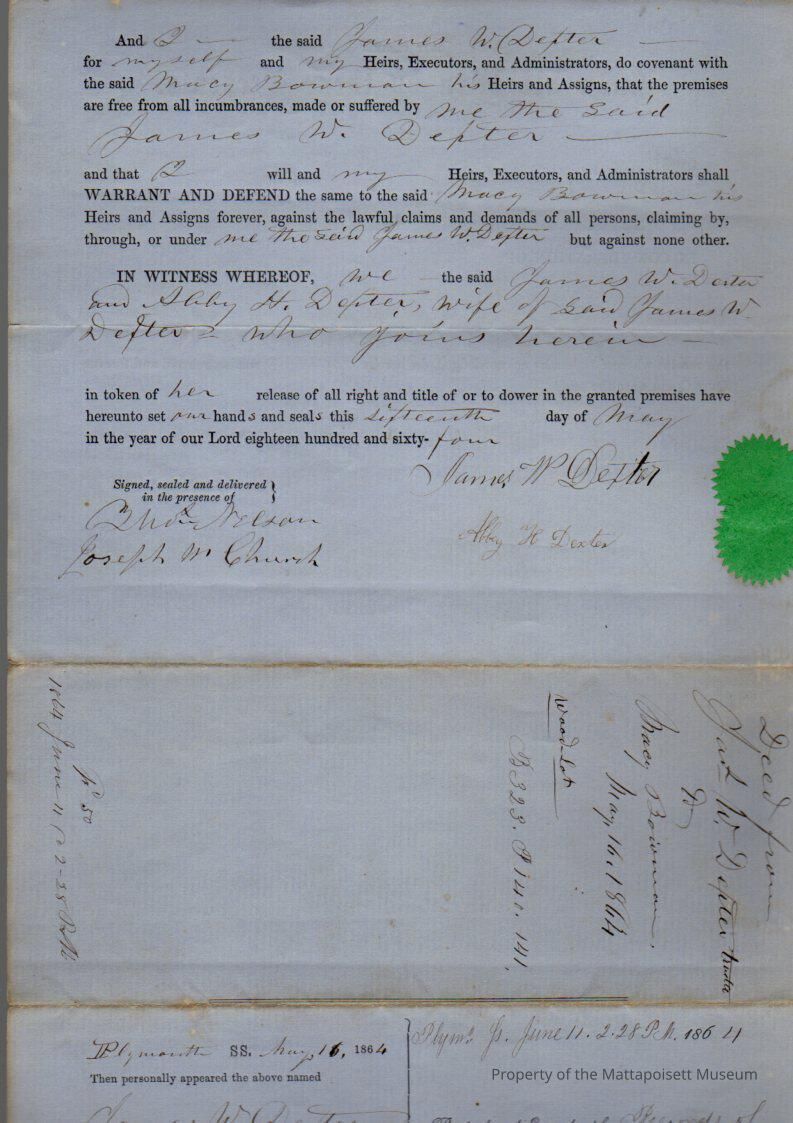 And I the said James W. Dexter
for myself and my Heirs, Executors, and Administrators, do covenant with
the said Macy Bowman his Heirs and Assigns, that the premises
are free from all incumbrances, made or suffered by me the said
James W. Dexter
and that I will and my Heirs, Executors, and Administrators shall
WARRANT AND DEFEND the same to the said Macy Bowman his
Heirs and Assigns forever, against the lawful claims and demands of all persons, claiming by,
through, or under me the said James W. Dexter but against none other.
IN WITNESS WHEREOF, we the said James W. Dexter
and Abby H. Dexter, wife of said James W.
Dexter - who joins herein -
in token of her release of all right and title of or to dower in the granted premises have
hereunto set our hands and seals this sixteenth day of May
in the year of our Lord eighteen hundred and sixty-four
Signed, sealed and delivered
in the presence of
James W Dexter
Nelson
Joseph W Church
Abby H Dexter
Deed from
W. Dexter
to
Macy Bowman.
May 16. 1864
Wood Lot
B 323. P 140. 141.
pd 50
1864 June 11 2-28 P.M.
Plymouth SS. May 16, 1864
Then personally appeared the above named
James W Dexter
Plymo. Ss. June 11. 2.28 P.M. 1864
Records of
Property of the Mattapoisett Museum